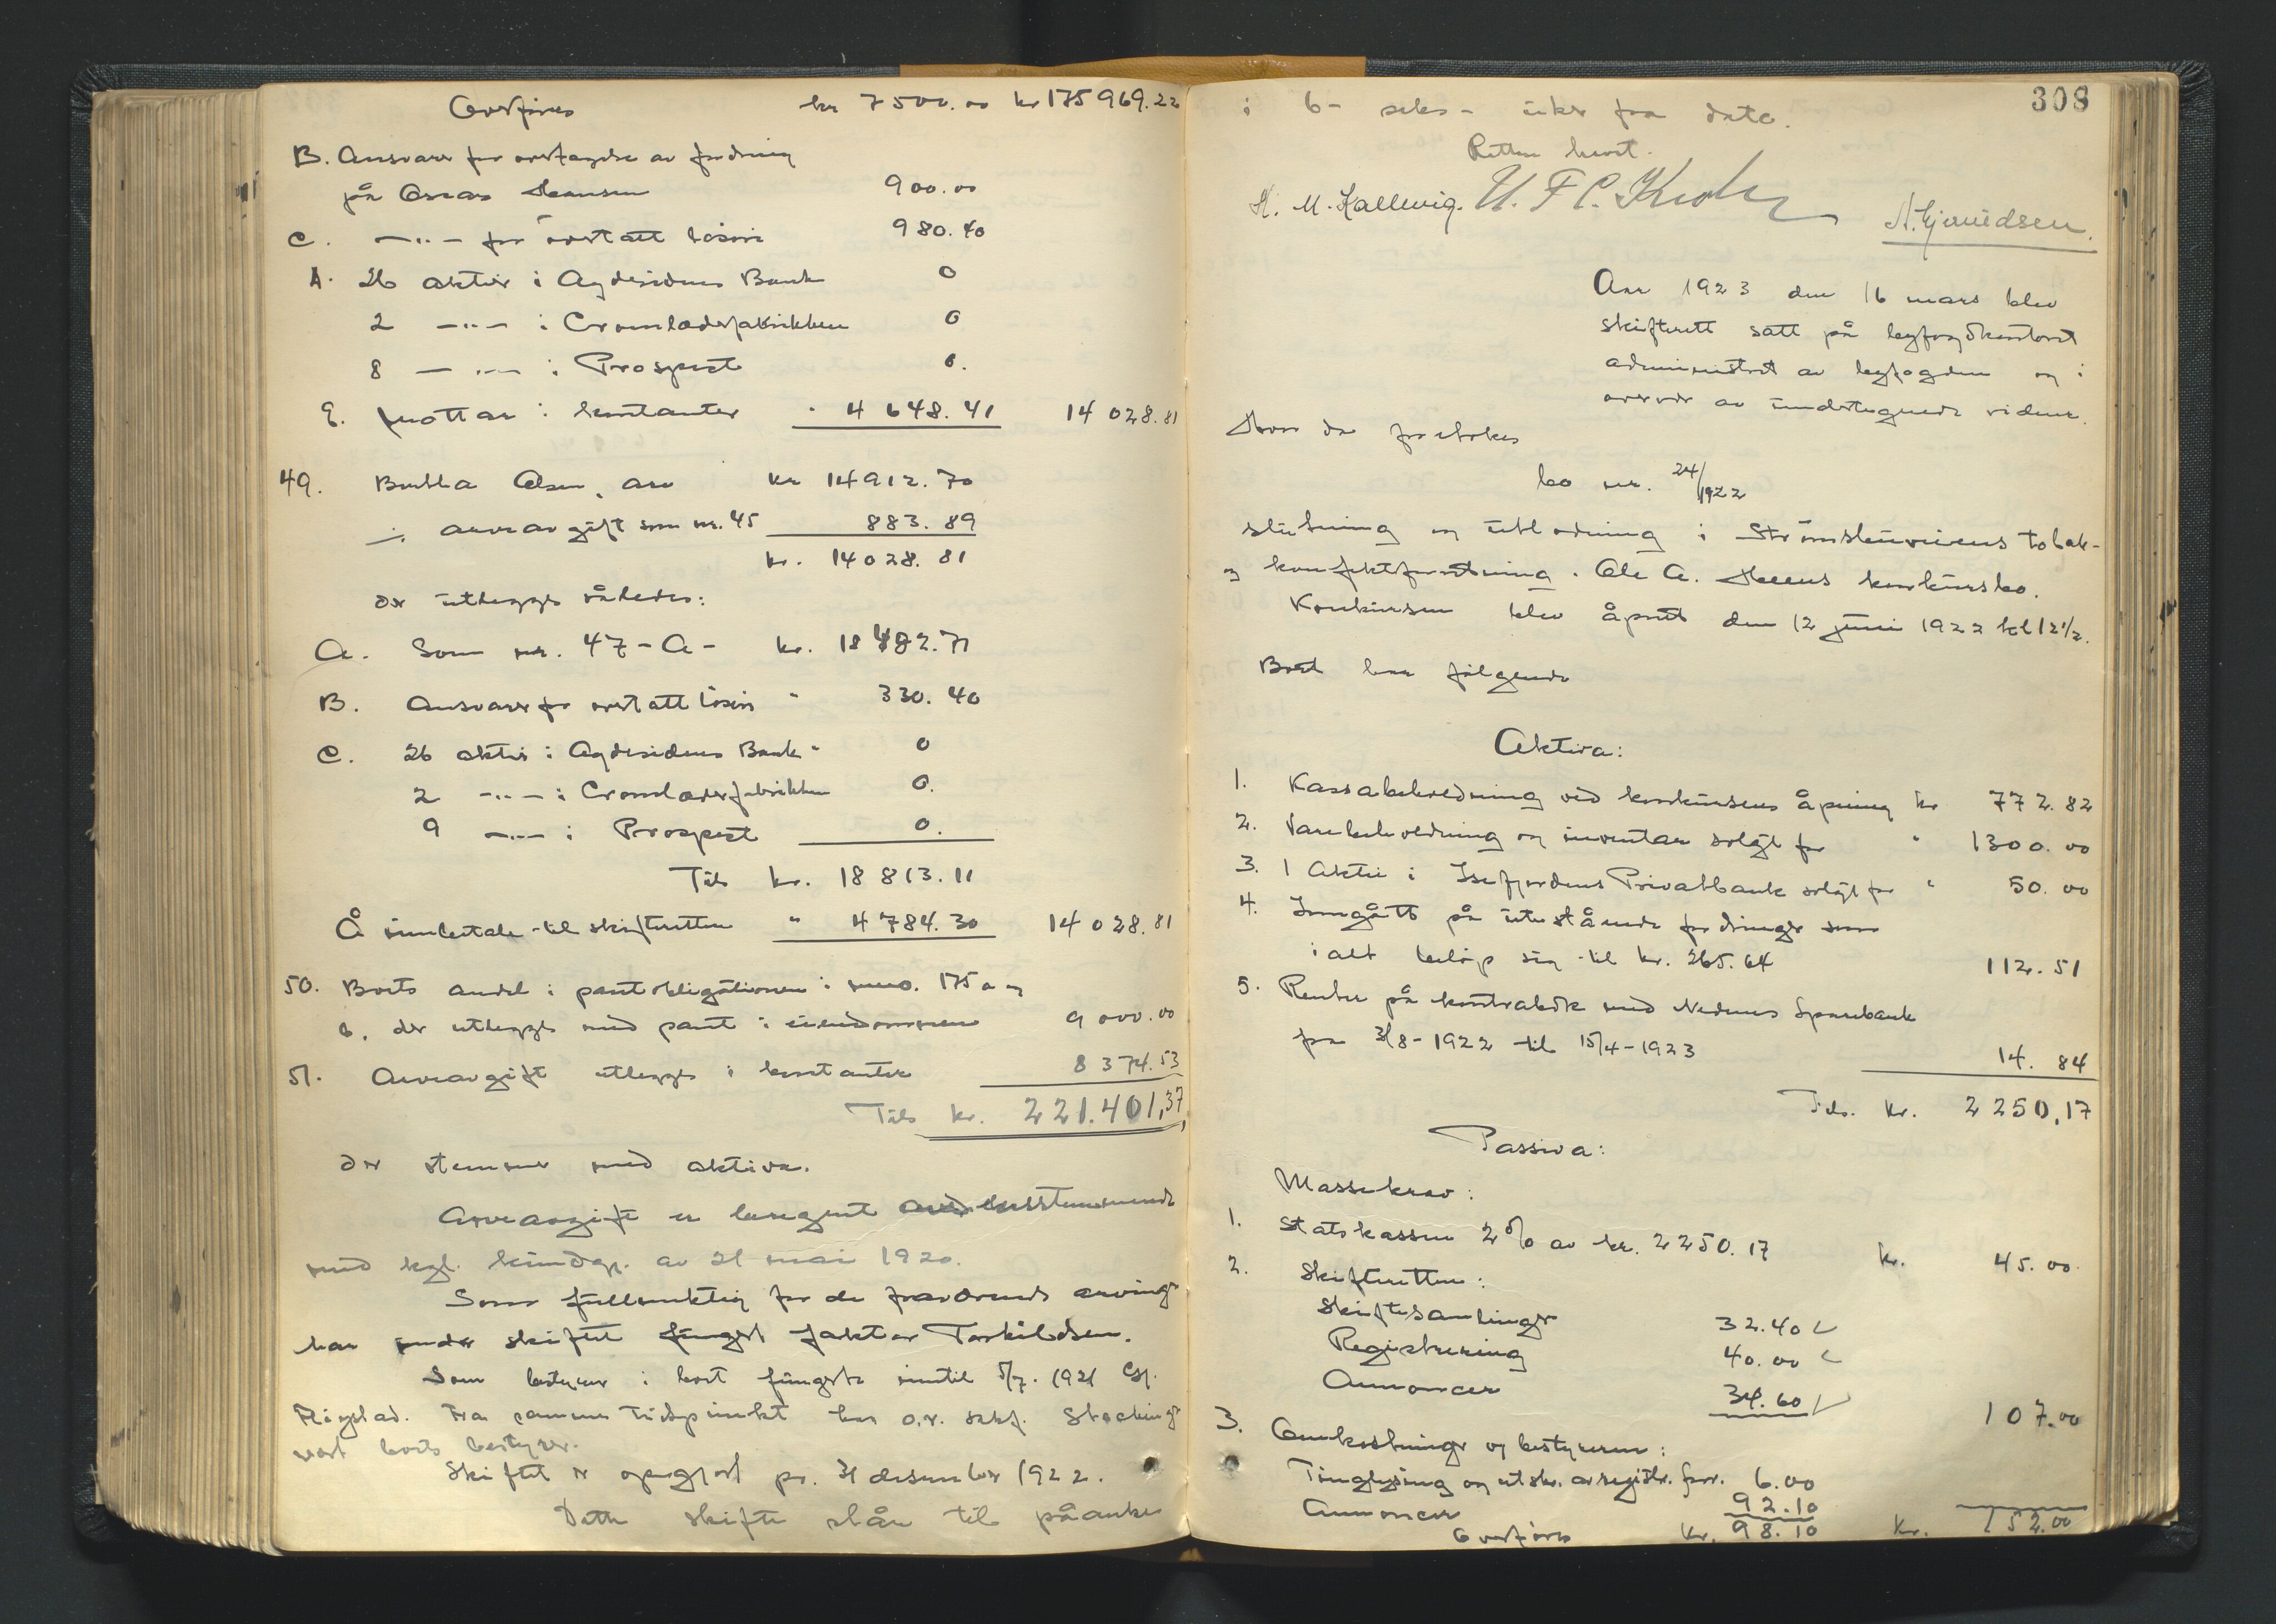 Overføres kr 7500.00 kr 175969.22
B. Ansvar for overtagelse av fordring
på Oscar Hansen 900.00
C. -"- for overtatt løsøre 980.40
D. 26 aktier i Agdesidens Bank 0
2 -"- i Cromlæderfabrikken 0
8 -"- i Prospect 0.
E. godtar i kontanter " 4648.41 14028.81
49. Olsen, arv kr 14912.70
÷ arveavgift som nr. 45 883.89
kr. 14028.81
der utlegges således:
A. Som nr. 47-A- kr. 18482.71
B. Ansvar for overtatt løsøre " 330.40
C. 26 aktier i Agdesidens Bank " 0
2 -"- i Cromlæderfabrikken 0.
9 -"- i Prospect 0.
Tils kr. 18813.11
Å innbetale til skifteretten " 4784.30 14028.81
50. Boets andel i pantobligationen i 175 a og
b. der utlegges med pant i eiendommen 9000.00
51. Arveavgift utlegges i kontanter 8374.53
Tils kr. 221.401,37
der stemmer med aktiva.
Arveavgift er beregnet overensstemmende
med kgl. kundgj. av 21 mai 1920.
Som fullmektig for de fraværende arvinger
har under skiftet fungert faktor Torkildsen.
Som bestyrer i boet fungerte inntil 5/7. 1921 Gj.
Fra samme tidspunkt har o.r. sakf.
vært boets bestyrer.
Skiftet er opgjort pr. 31 desember 1922.
Dette skifte står til påanke
308
i 6- seks- uker fra dato.
Retten hevet.
H. M. Kallevig. U. F. C. Krohn A. Gjermundsen.
Aar 1923 den 16 mars blev
skifterett satt på byfogdkontoret
administrert av byfogden og i
overvær av undertegnede vidner.
Hvor da foretokes
bo nr. 24/1922
slutning og utlodning i Strømsbuveiens tobak-
og konfektforretning. Ole A. konkursbo.
Konkursen blev åpnet den 12 juni 1922 kl 12 1/2.
Boet har følgende
Aktiva:
1. Kassabeholdning ved konkursens åpning kr 772.82
2. Varebeholdning og inventar solgt for " 1300.00
3. 1 Aktie i Privatbank solgt for " 50.00
4. Inngått på utestående fordringer som
i alt beløp sig til kr. 265.64 112.51
5. Renter på kontrabok med Nedenes Sparebank
fra 31/8-1922 til 15/4-1923 14.84
Tils. kr. 2250,17
Passiva:
Massekrav:
1. Statskassen 2% av kr. 2250.17 kr. 45.00
2. Skifteretten:
Skiftesamlinger 32.40
Registrering 40.00
Annoncer 34.60 107.00
3. Omkostninger og bestyreren:
Tinglysing og utskr. av registr. forr. 6.00
Annoncer 92.10
Overføres kr. 98.10 kr. 152.00